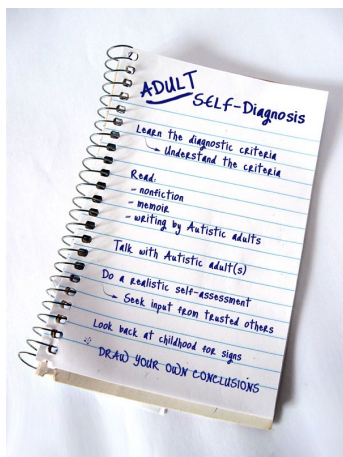 ADULT
SELF-DIAGNOSIS
Learn the diagnostic criteria
Understand the criteria
Read:
- nonfiction
- memoir
- writing by Autistic adults
Talk with Autistic adult(s)
Do a realistic self-assessment
Seek input from trusted others
Look back at childhood for signs
DRAW YOUR OWN CONCLUSIONS